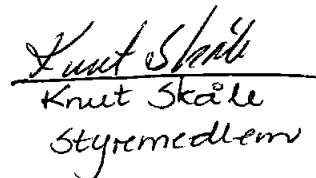 Knut Skåle
Knut Skåle
Styremedlem